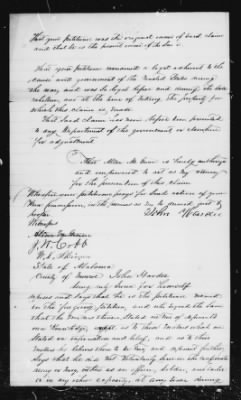 That your petitioner was the original owner of said claim
and that he is the present owner of the same
That your petitioner remained a loyal adherent to the
cause and government of the United States during
the war, and was so loyal before and during the late
rebellion, and at the time of taking the property for
which this claim is made
That said claim has never before been presented
to any Department of the government or elsewhere
for adjustment.
That Allen McLane is hereby authorized
and empowered to act as my attorney
for the prosecution of this claim
Wherefore your petitioner prays for such action of your
Commission in the premises as may be deemed just &
proper
John Hardee
Witnesses
J. W. Cobb
State of Alabama
County of Monroe
John Hardee
being duly sworn for himself
deposes and says that he is the petitioner named
in the foregoing petition, and who signed the same
that the matters therein stated as true of deponent's
own knowledge are so those matters which are
stated on information and belief, and as to those
matters he believes them to be true and deponent further
says that he did not voluntarily serve in the confederate
army or navy, either as an officer, soldier, or sailor
or in any other capacity, at any time during